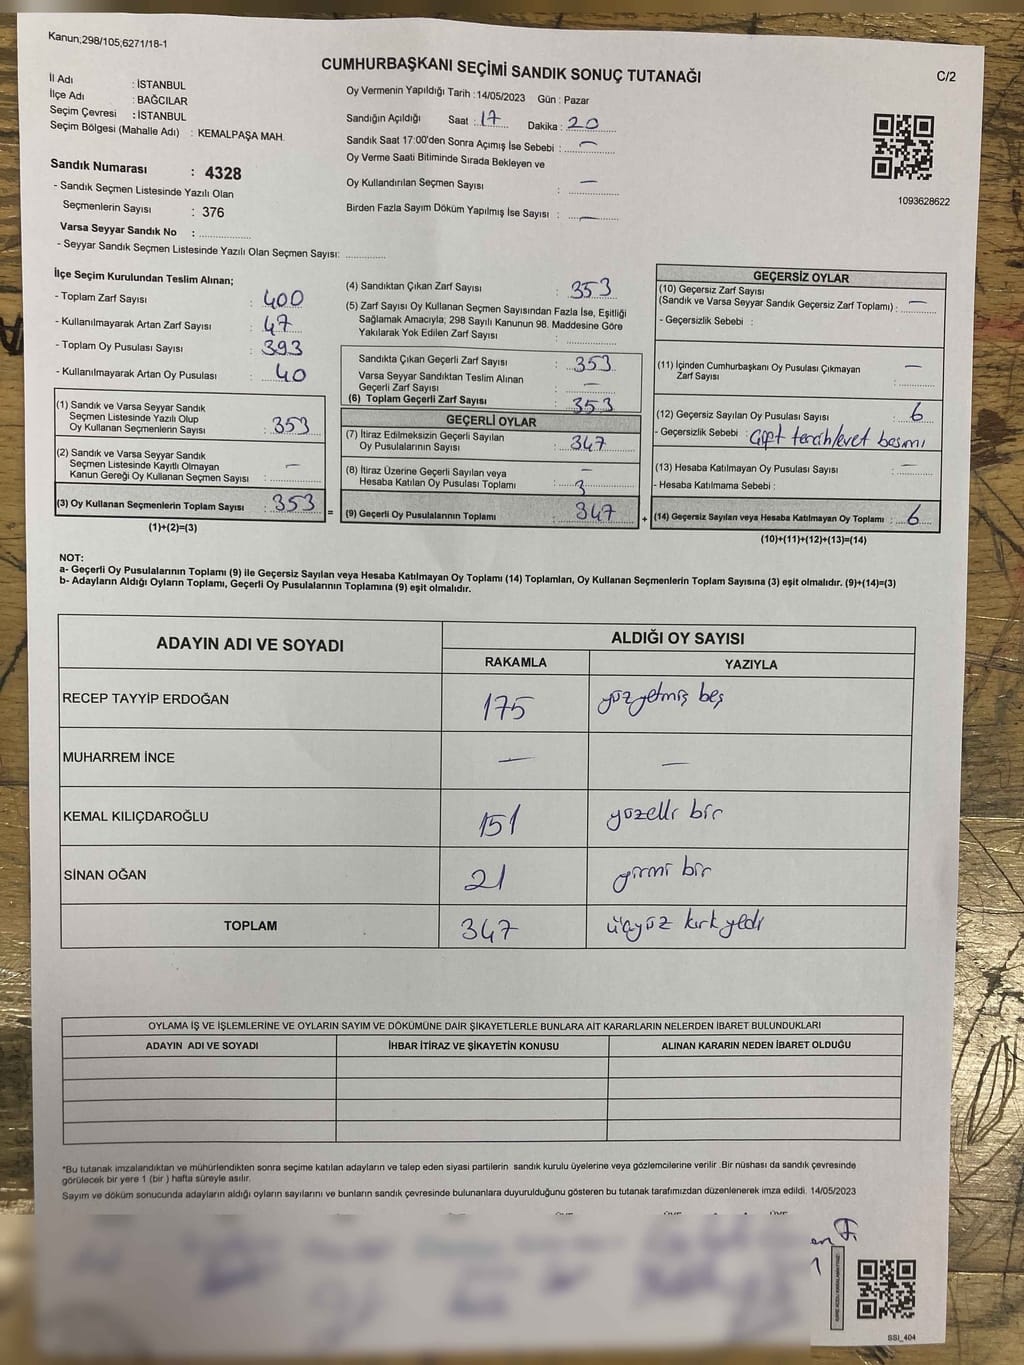 Kanun;298/105;6271/18-1
CUMHURBAŞKANI SEÇİMİ SANDIK SONUÇ TUTANAĞI
C/2
İl Adı : İSTANBUL
İlçe Adı : BAĞCILAR
Seçim Çevresi : İSTANBUL
Seçim Bölgesi (Mahalle Adı) : KEMALPAŞA MAH.
Sandık Numarası : 4328
- Sandık Seçmen Listesinde Yazılı Olan
Seçmenlerin Sayısı : 376
Varsa Seyyar Sandık No :
- Seyyar Sandık Seçmen Listesinde Yazılı Olan Seçmen Sayısı:
Oy Vermenin Yapıldığı Tarih :14/05/2023 Gün : Pazar
Sandığın Açıldığı Saat : 17 Dakika : 20
Sandık Saat 17:00'den Sonra Açımış İse Sebebi : —
Oy Verme Saati Bitiminde Sırada Bekleyen ve
Oy Kullandırılan Seçmen Sayısı : —
Birden Fazla Sayım Döküm Yapılmış İse Sayısı : —
1093628622
İlçe Seçim Kurulundan Teslim Alınan;
- Toplam Zarf Sayısı : 400
- Kullanılmayarak Artan Zarf Sayısı : 47
- Toplam Oy Pusulası Sayısı : 393
- Kullanılmayarak Artan Oy Pusulası : 40
(1) Sandık ve Varsa Seyyar Sandık
Seçmen Listesinde Yazılı Olup
Oy Kullanan Seçmenlerin Sayısı : 353
(2) Sandık ve Varsa Seyyar Sandık
Seçmen Listesinde Kayıtlı Olmayan
Kanun Gereği Oy Kullanan Seçmen Sayısı : —
(3) Oy Kullanan Seçmenlerin Toplam Sayısı : 353
(1)+(2)=(3)
=
(4) Sandıktan Çıkan Zarf Sayısı : 353
(5) Zarf Sayısı Oy Kullanan Seçmen Sayısından Fazla İse, Eşitliği
Sağlamak Amacıyla; 298 Sayılı Kanunun 98. Maddesine Göre
Yakılarak Yok Edilen Zarf Sayısı :
Sandıkta Çıkan Geçerli Zarf Sayısı : 353
Varsa Seyyar Sandıktan Teslim Alınan
Geçerli Zarf Sayısı : —
(6) Toplam Geçerli Zarf Sayısı : 353
GEÇERLİ OYLAR
(7) İtiraz Edilmeksizin Geçerli Sayılan
Oy Pusulalarının Sayısı : 347
(8) İtiraz Üzerine Geçerli Sayılan veya —
Hesaba Katılan Oy Pusulası Toplamı : 3
(9) Geçerli Oy Pusulalarının Toplamı : 347
+
GEÇERSİZ OYLAR
(10) Geçersiz Zarf Sayısı
(Sandık ve Varsa Seyyar Sandık Geçersiz Zarf Toplamı) : —
- Geçersizlik Sebebi :
(11) İçinden Cumhurbaşkanı Oy Pusulası Çıkmayan
Zarf Sayısı : —
(12) Geçersiz Sayılan Oy Pusulası Sayısı : 6
- Geçersizlik Sebebi : Çift tercih/evet basımı
(13) Hesaba Katılmayan Oy Pusulası Sayısı : —
- Hesaba Katılmama Sebebi :
(14) Geçersiz Sayılan veya Hesaba Katılmayan Oy Toplamı : 6
(10)+(11)+(12)+(13)=(14)
NOT:
a- Geçerli Oy Pusulalarının Toplamı (9) ile Geçersiz Sayılan veya Hesaba Katılmayan Oy Toplamı (14) Toplamları, Oy Kullanan Seçmenlerin Toplam Sayısına (3) eşit olmalıdır. (9)+(14)=(3)
b- Adayların Aldığı Oyların Toplamı, Geçerli Oy Pusulalarının Toplamına (9) eşit olmalıdır.
ADAYIN ADI VE SOYADI ALDIĞI OY SAYISI
RAKAMLA YAZIYLA
RECEP TAYYİP ERDOĞAN 175 yüzyetmiş beş
MUHARREM İNCE — —
KEMAL KILIÇDAROĞLU 151 yüzelli bir
SİNAN OĞAN 21 yirmi bir
TOPLAM 347 üçyüz kırk yedi
OYLAMA İŞ VE İŞLEMLERİNE VE OYLARIN SAYIM VE DÖKÜMÜNE DAİR ŞİKAYETLERLE BUNLARA AİT KARARLARIN NELERDEN İBARET BULUNDUKLARI
ADAYIN ADI VE SOYADI İHBAR İTİRAZ VE ŞİKAYETİN KONUSU ALINAN KARARIN NEDEN İBARET OLDUĞU
*Bu tutanak imzalandıktan ve mühürlendikten sonra seçime katılan adayların ve talep eden siyasi partilerin sandık kurulu üyelerine veya gözlemcilerine verilir .Bir nüshası da sandık çevresinde
görülecek bir yere 1 (bir ) hafta süreyle asılır.
Sayım ve döküm sonucunda adayların aldığı oyların sayılarını ve bunların sandık çevresinde bulunanlara duyurulduğunu gösteren bu tutanak tarafımızdan düzenlenerek imza edildi. 14/05/2023
SSI_404